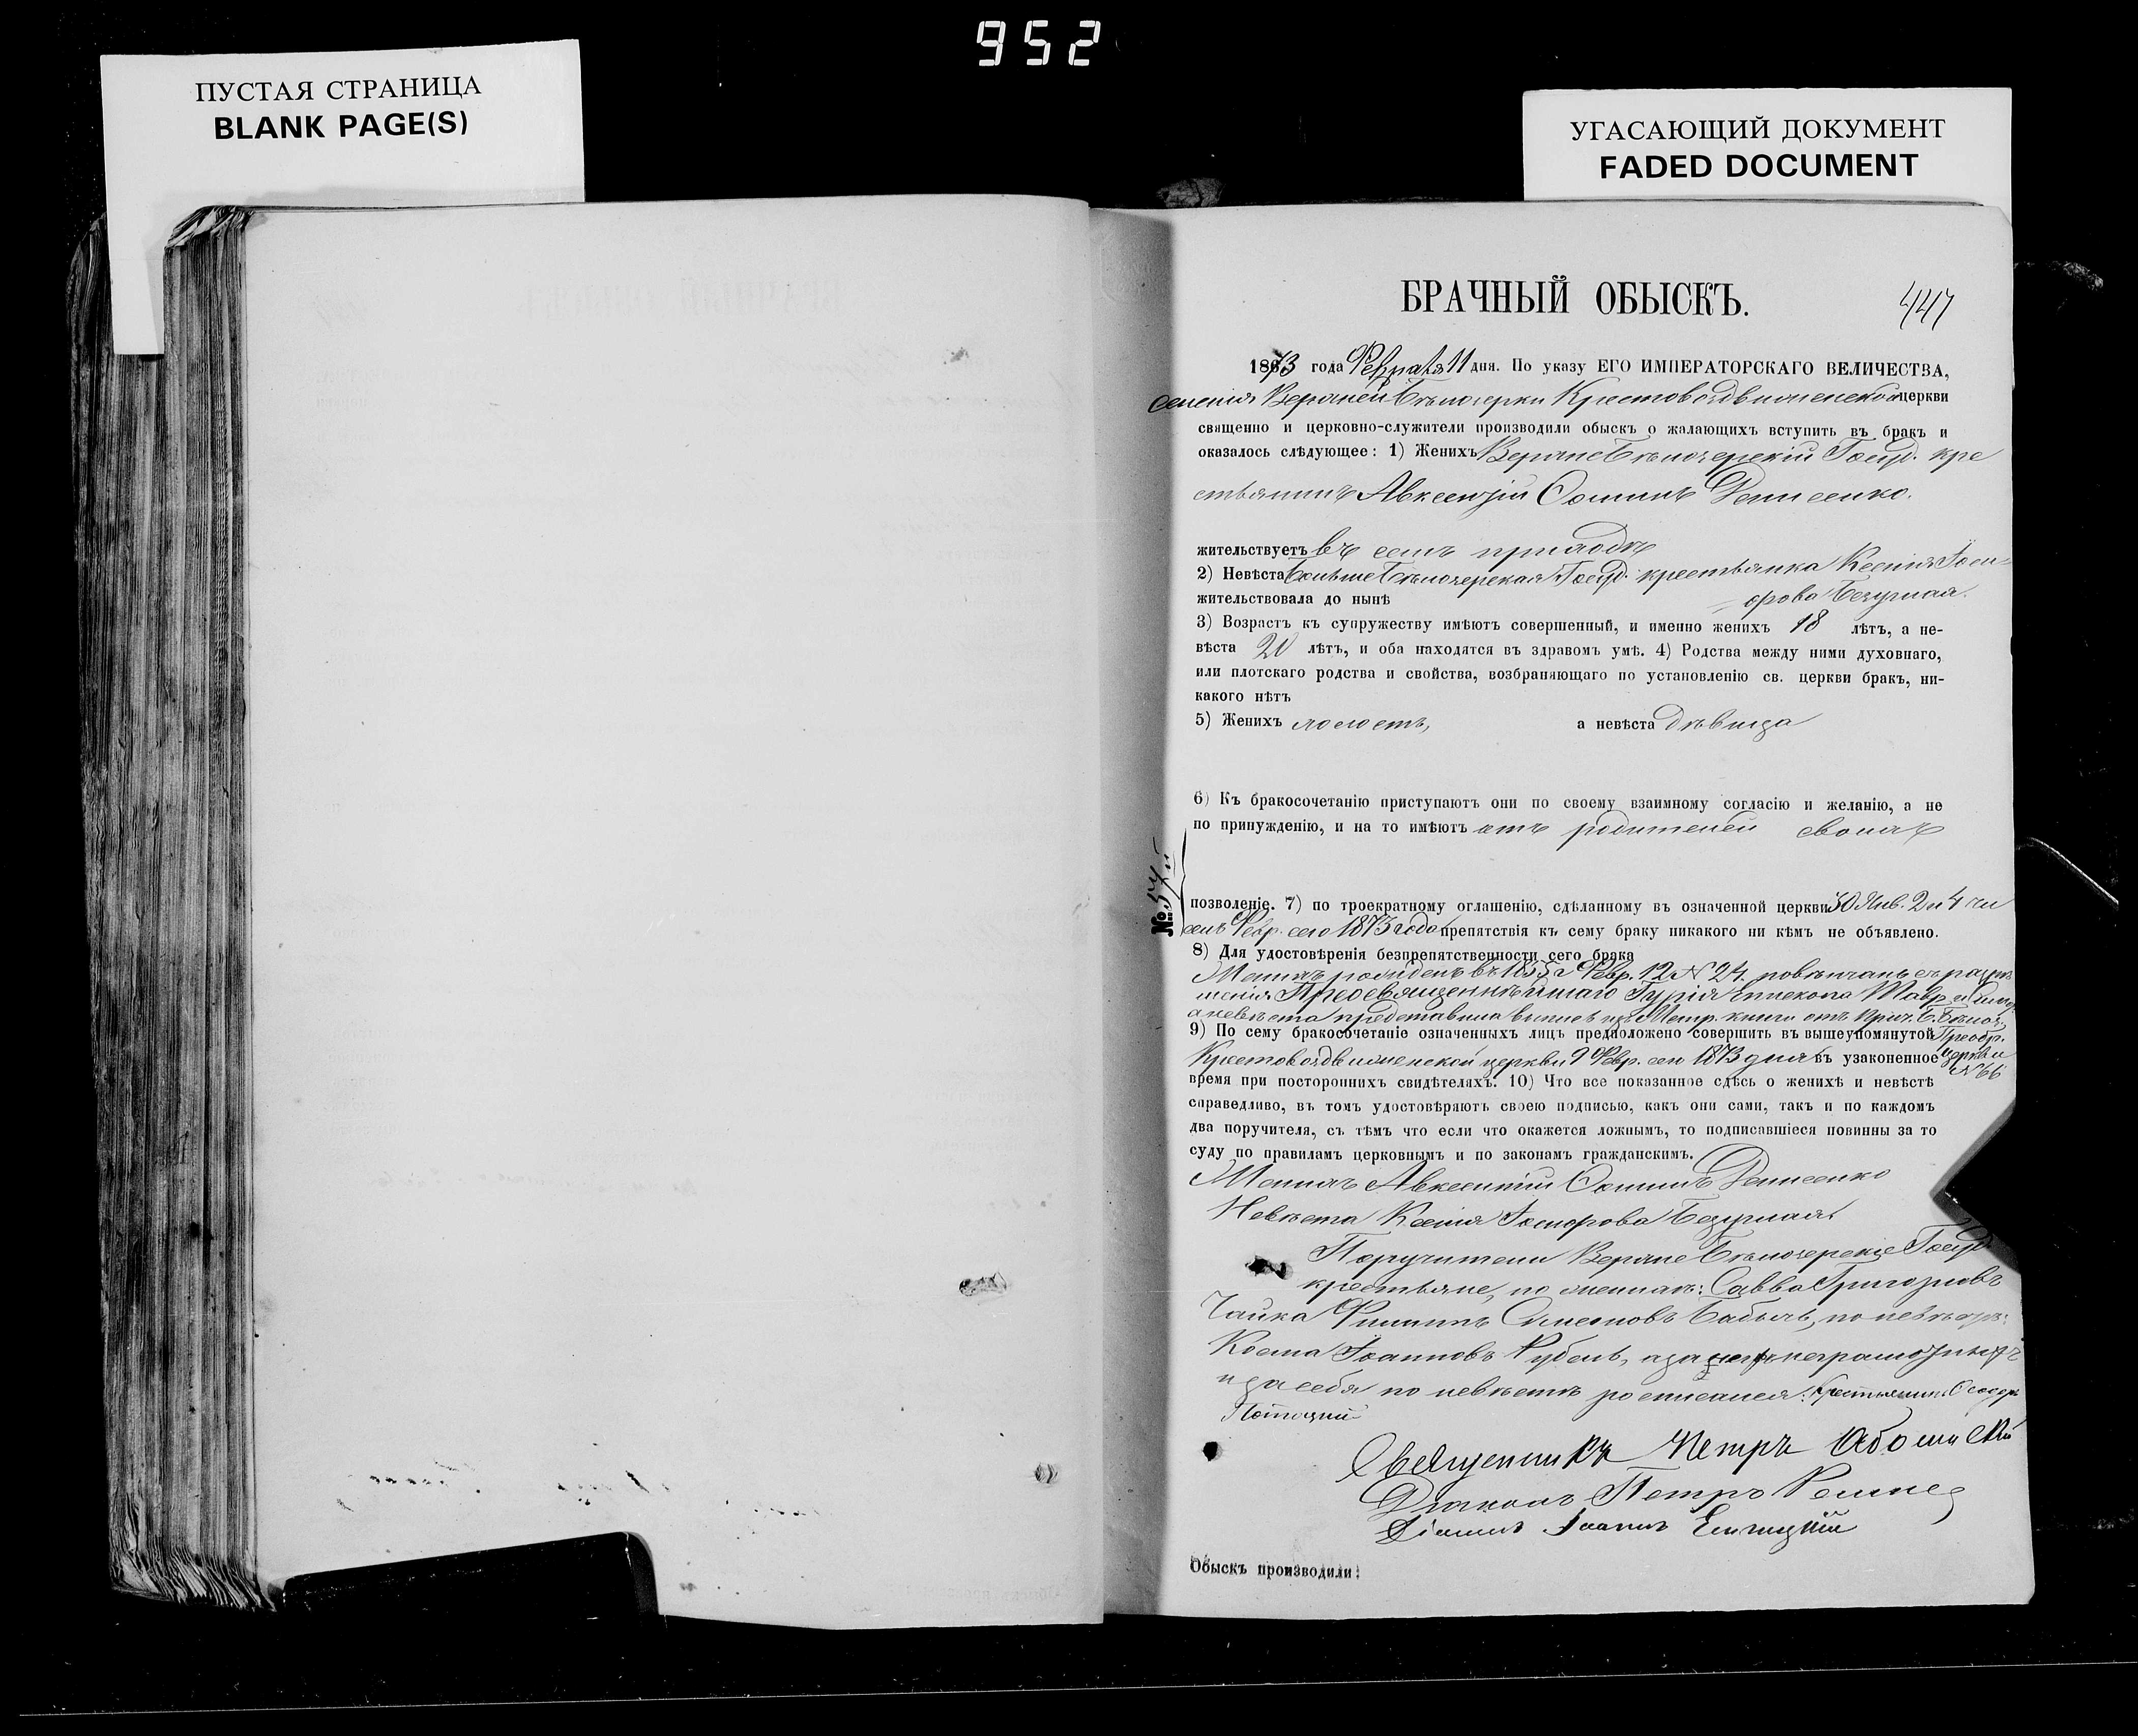 952
ПУСТАЯ СТРАНИЦА
BLANK PAGE(S)
УГАСАЮЩИЙ ДОКУМЕНТ
FADED DOCUMENT
БРАЧНЫЙ ОБЫСКЪ.
447
1873 года Февраля 11 дня. По указу ЕГО ИМПЕРАТОРСКАГО ВЕЛИЧЕСТВА,
селенія Верхней Бѣлозерки Крестовоздвиженской церкви
священно и церковно-служители производили обыскъ о жалающихъ вступить въ бракъ и
оказалось слѣдующее: 1) Женихъ Верхне Бѣлозерскій Госуд. кре
стьянинъ Авксентій Осиповъ Денисенко.
жительствуетъ въ семъ приходѣ
2) Невѣста Больше Бѣлозерская Госуд. крестьянка Ксенія
жительствовала до нынѣ
орова Безумная.
3) Возрастъ къ супружеству имѣютъ совершенный, и именно женихъ 18 лѣтъ, а не-
вѣста 20 лѣтъ, и оба находятся въ здравомъ умѣ. 4) Родства между ними духовнаго,
или плотскаго родства и свойства, возбраняющаго по установленію св. церкви бракъ, ни-
какого нѣтъ
5) Женихъ холостъ, а невѣста дѣвица
6) Къ бракосочетанію приступаютъ они по своему взаимному согласію и желанію, а не
по принужденію, и на то имѣютъ отъ родителей своихъ
№ 57й
позволеніе. 7) по троекратному оглашенію, сдѣланному въ означенной церкви 30 Янв. 2 и 4 чи
селъ Февр. сего 1873 года препятствія къ сему браку никакого ни кѣмъ не объявлено.
8) Для удостовѣренія безпрепятственности сего брака
Женихъ рожденъ въ 1855 г. Февр. 12 № 24. повѣнчанъ съ разрѣ
шенія Преосвященнѣйшаго Гурія Епископа Тавр. и Симф.
а невѣста представила выпись изъ Метр. книги отъ прич. Б. Бѣлоз.
9) По сему бракосочетаніе означенныхъ лицъ предположено совершить въ вышеупомянутой Преобр.
Крестовоздвиженской церкви 9 Февр. сего 1873 дня въ узаконенное церкви
№ 66
время при постороннихъ свидѣтеляхъ. 10) Что все показанное сдѣсь о женихѣ и невѣстѣ
справедливо, въ томъ удостовѣряютъ своею подписью, какъ они сами, такъ и по каждомъ
два поручителя, съ тѣмъ что если что окажется ложнымъ, то подписавшіеся повинны за то
суду по правиламъ церковнымъ и по законамъ гражданскимъ.
Женихъ Авксентій Осиповъ Денисенко
Невѣста Ксенія Безумная
Поручители Верхне Бѣлозерскіе Госуд
крестьяне, по женихѣ: Савва Григорьевъ
Чайка Филиппъ Симеоновъ Бабычъ, по невѣстѣ:
Косма Іоанновъ Рубель, а за неграмотныхъ
и за себя по невѣстѣ росписался: Крестьянинъ Ѳеодоръ
Священникъ Петръ
Діаконъ Петръ
Дьячекъ Іоаннъ
Обыскъ производили: